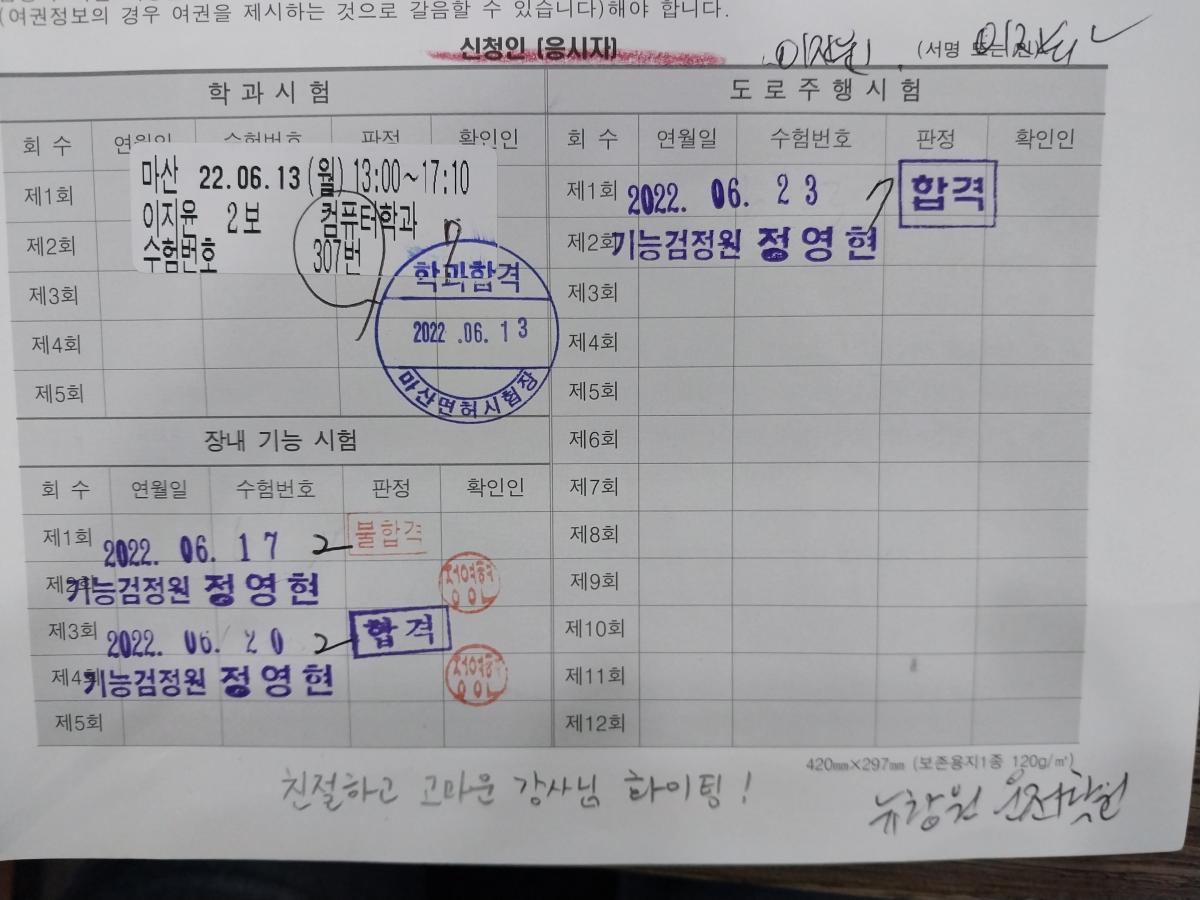 (여권정보의 경우 여권을 제시하는 것으로 갈음할 수 있습니다)해야 합니다.
신청인 (응시자) (서명 또는 인)
학 과 시 험
회 수 연월일 수험번호 판정 확인인
마산 22.06.13 (월) 13:00~17:10
제1회
이지윤 2보 컴퓨터학과
제2회
수험번호 307번
제3회
제4회
제5회
학과합격
2022 .06. 1 3
마산면허시험장
장내 기능 시험
회 수 연월일 수험번호 판정 확인인
제1회 2022. 06. 1 7 2 불합격
제2회 기능검정원 정영현
제3회 2022. 06. 2 0 2 합격
제4회 기능검정원 정영현
제5회
도 로 주 행 시 험
회 수 연월일 수험번호 판정 확인인
제1회 2022. 06. 2 3 합격
제2회 기능검정원 정영현
제3회
제4회
제5회
제6회
제7회
제8회
제9회
제10회
제11회
제12회
420㎜×297㎜ (보존용지1종 120g/㎡)
친절하고 고마운 강사님 화이팅!
뉴창원 운전학원